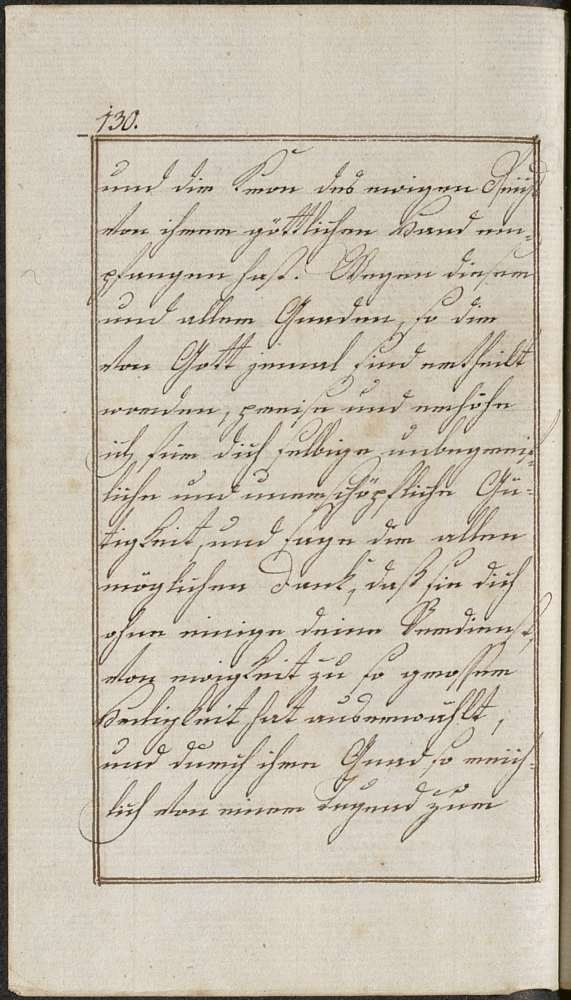 130.
und die Kron des ewigen Reichs
von ihrer göttlichen Hand em-
pfangen hast. Wegen diesen
und allen Gnaden, so dir
von Gott jemal sind ertheilt
worden, preise und erhöhe
ich für dich selbige unbegreif-
liche und unerschöpfliche Gü-
tigkeit, und sage dir allen
möglichen Dank, daß sie dich
ohne einige deine Verdienst,
von ewigkeit zu so grosser
Heiligkeit hat auserwählt,
und durch ihre Gnad so reich-
lich von einer Tugend zur